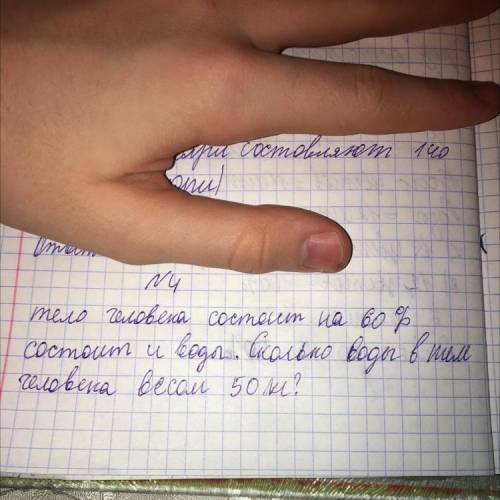 составляют 140
Ответ
№4
тело человека состоит на 60%
состоит и воды. Сколько воды в теле
человека весом 50 кг?